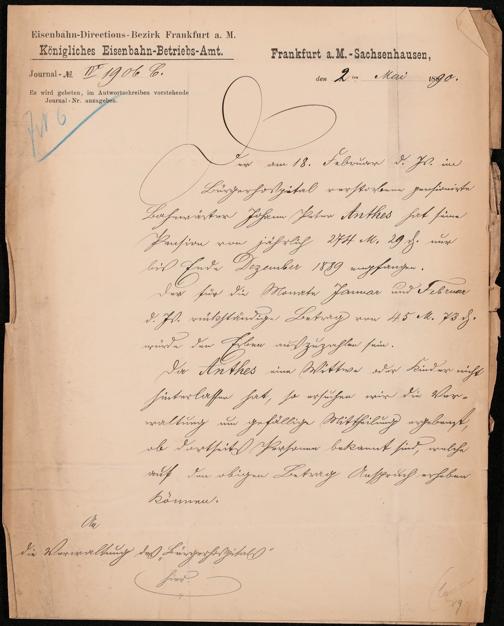 Eisenbahn-Directions-Bezirk Frankfurt a. M.
Königliches Eisenbahn-Betriebs-Amt.
Frankfurt a. M.-Sachsenhausen,
Journal-№ IV 1906 C.
den 2 ten Mai 1890.
Es wird gebeten, im Antwortschreiben vorstehende
Journal-Nr. anzugeben.
Der am 18. Februar d. Js. im
Bürgerhospital verstorbene pensionirte
Bahnwärter Johann Peter Anthes hat seine
Pension von jährlich 274 M. 29 ₰. nur
bis Ende Dezember 1889 empfangen.
Der für die Monate Januar und Februar
d. Js. rückständige Betrag von 45 M. 73 ₰.
würde den Erben auszuzahlen sein.
Da Anthes eine Wittwe oder Kinder nicht
hinterlassen hat, so ersuchen wir die Ver-
waltung um gefällige Mittheilung ergebenst,
ob dortseits Personen bekannt sind, welche
auf den obigen Betrag Anspruch erheben
können.
An
die Verwaltung des „Bürgerhospitals"
hier.